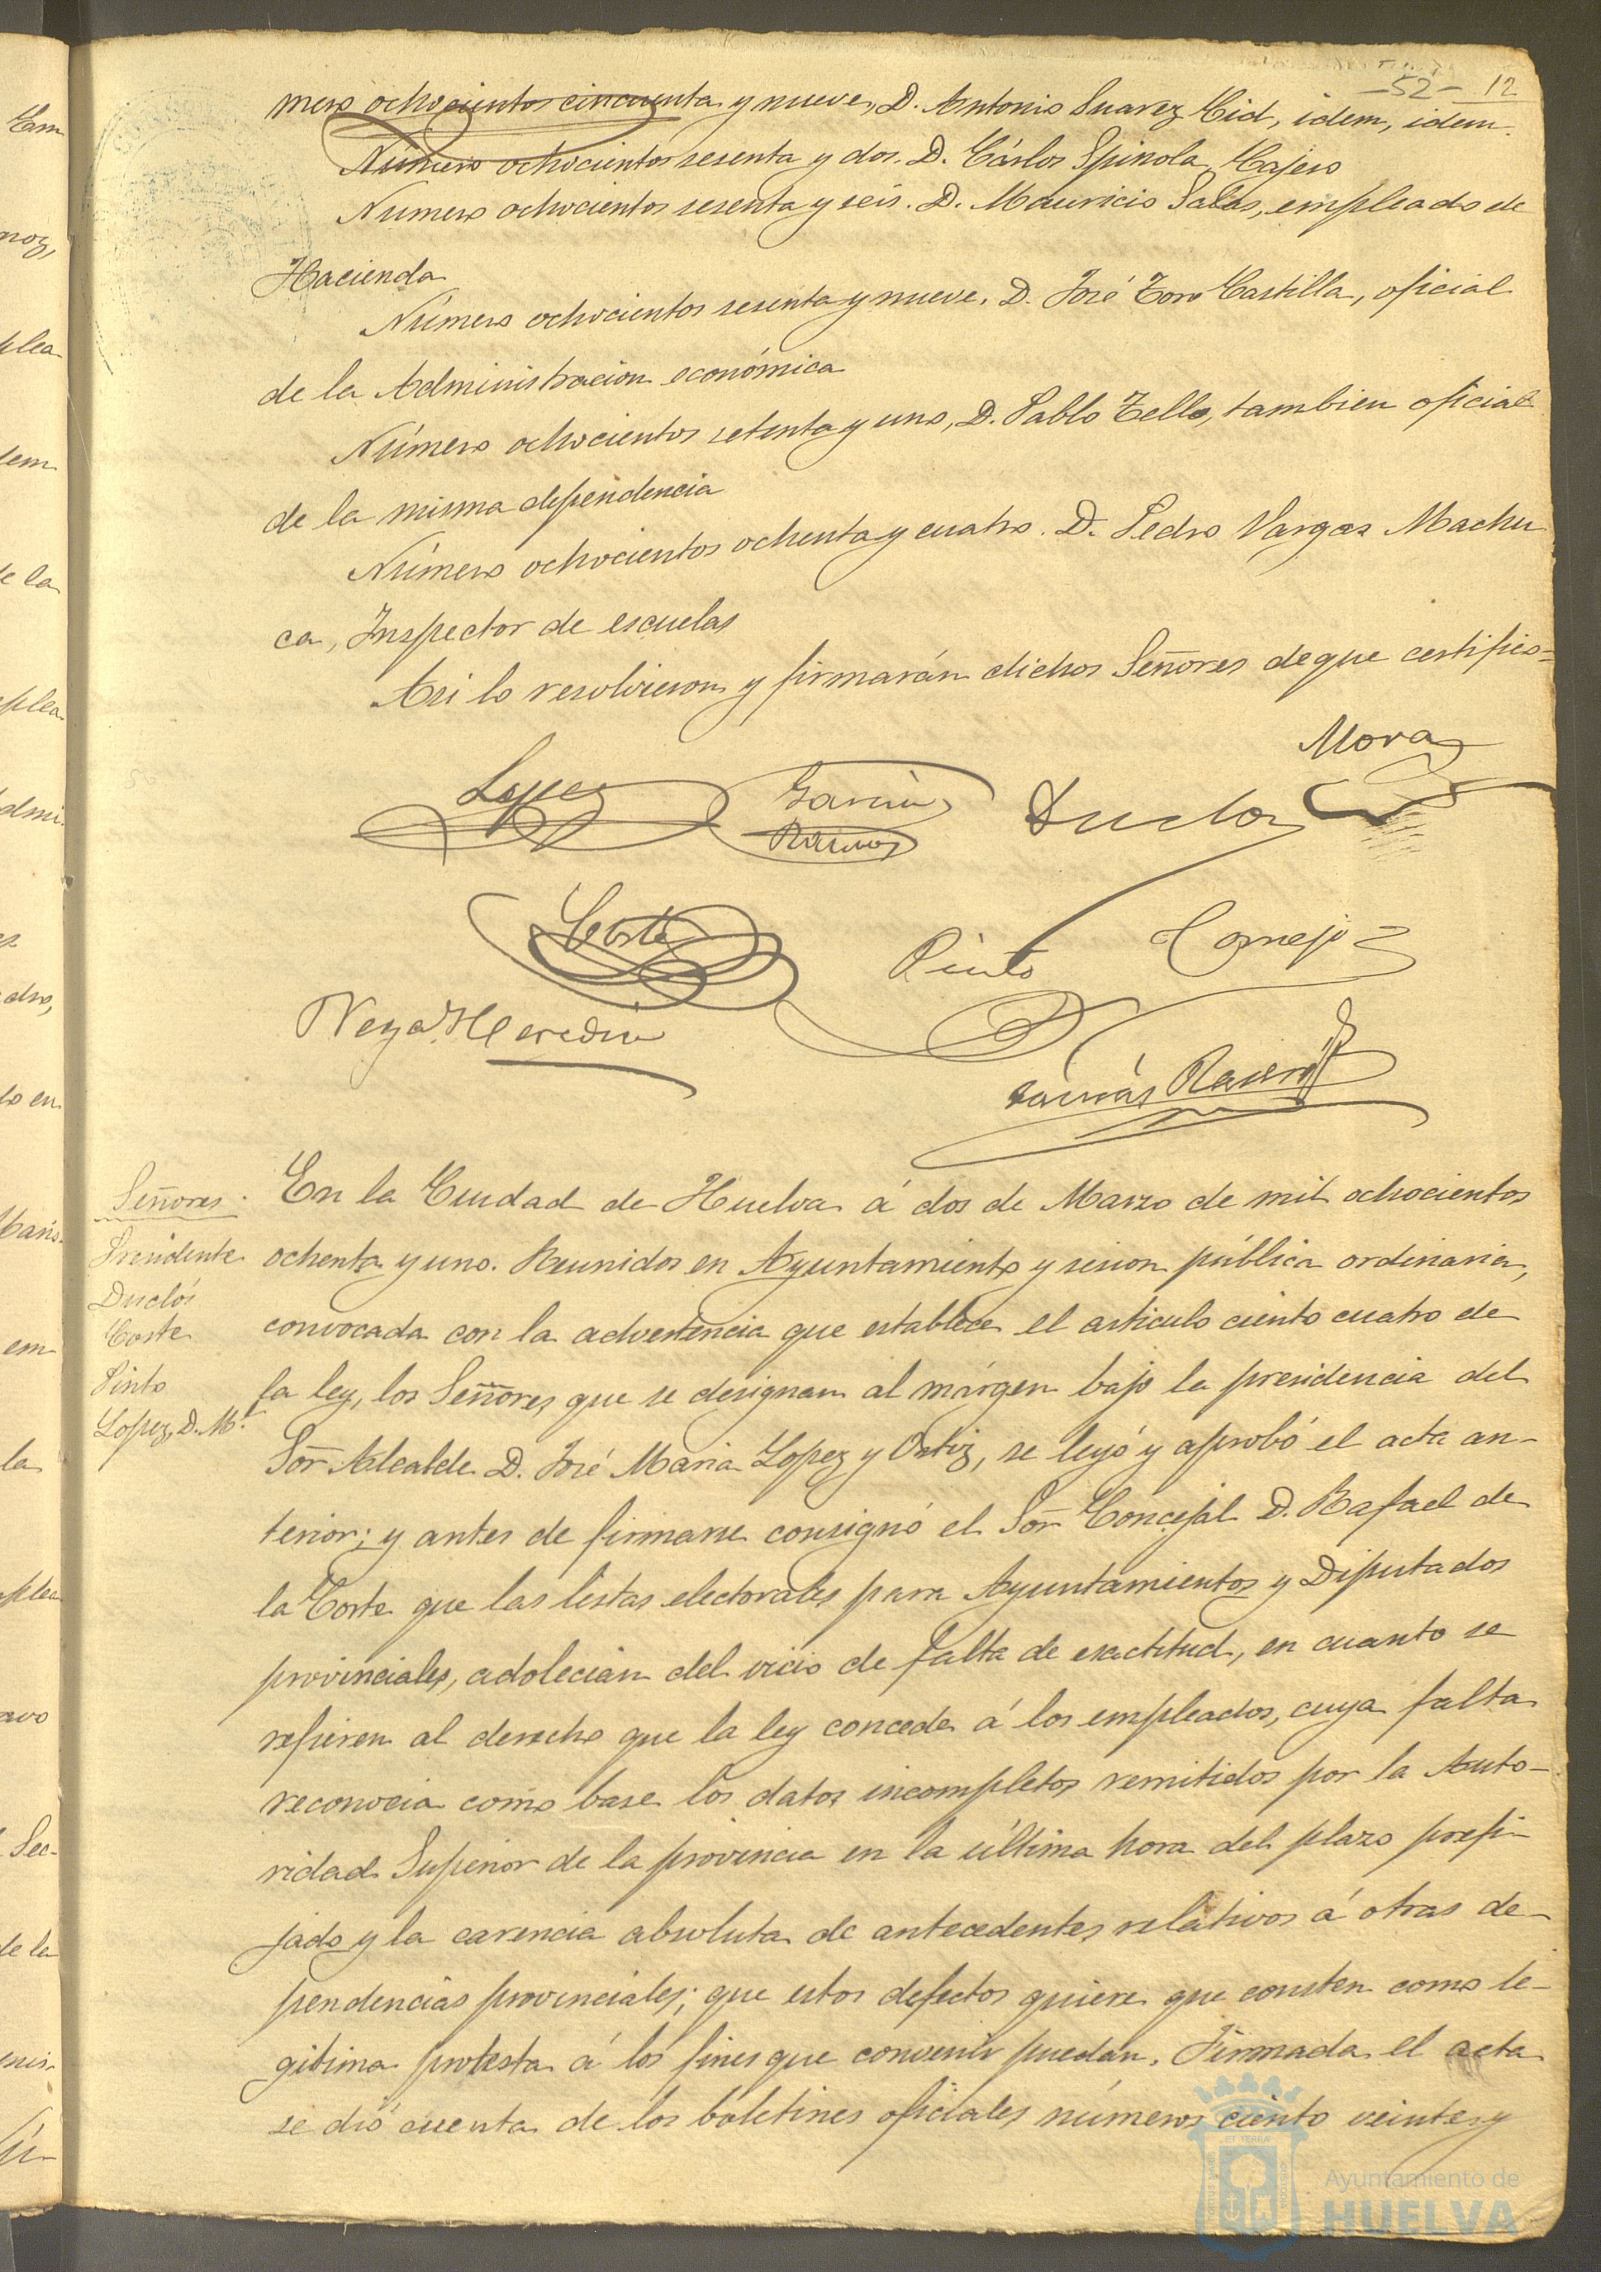 -52- 12
mero ochocientos cincuenta y nueve, D. Antonio Suarez Cid, idem, idem.
Número ochocientos sesenta y dos. D. Cárlos Spinola, Cajero
Número ochocientos sesenta y seis. D. Mauricio Salas, empleado de
Hacienda
Número ochocientos sesenta y nueve. D. José Toro Castilla, oficial
de la Administracion económica
Número ochocientos setenta y uno, D. Pablo Tello, tambien oficial
de la misma dependencia
Número ochocientos ochenta y cuatro. D. Pedro Vargas Machu
ca, Inspector de escuelas
Asi lo resolvieron y firmarán dichos Señores de que certifico=
Mora
Lopez
Garcia
Ramos
Duclos
Corte
Pinto
Cornejo
Vega Heredia
Tomás Rasero
Señores.
Presidente
Duclós
Corte
Pinto
Lopez, D. M.
En la Ciudad de Huelva á dos de Marzo de mil ochocientos
ochenta y uno. Reunidos en Ayuntamiento y sesion pública ordinaria,
convocada con la advertencia que establece el articulo ciento cuatro de
la ley, los Señores que se designan al márgen bajo la presidencia del
Sor Alcalde D. José Maria Lopez y Ortiz, se leyó y aprobó el acta an-
terior; y antes de firmarse consignó el Sor Concejal D. Rafael de
la Corte que las listas electorales para Ayuntamientos y Diputados
provinciales, adolecian del vicio de falta de exactitud, en cuanto se
refieren al derecho que la ley concede á los empleados, cuya falta
reconocia como base los datos incompletos remitidos por la Auto-
ridad Superior de la provincia en la última hora del plazo prefi-
jado y la carencia absoluta de antecedentes relativos á otras de-
pendencias provinciales; que estos defectos quiere que consten como le-
gitima protesta á los fines que convenir puedan. Firmada el acta
se dió cuenta de los boletines oficiales números ciento veinte y
Ayuntamiento de
HUELVA